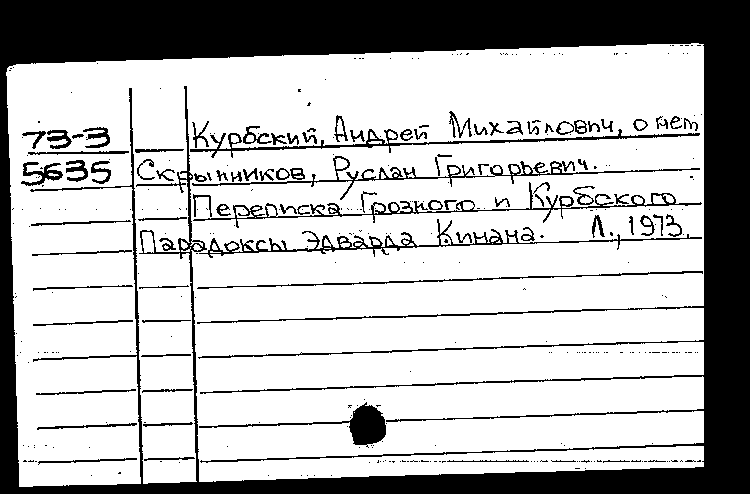 73-3 Курбский, Андрей Михайлович, о нем
5635 Скрынников, Руслан Григорьевич.
Переписка Грозного и Курбского
Парадоксы Эдварда Кинана. Л., 1973.